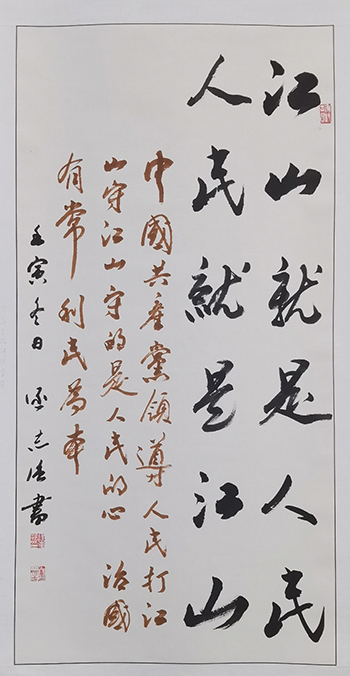 江山就是人民
人民就是江山
中國共產黨領導人民打江
山守江山守的是人民的心 治國
有常利民為本
壬寅冬日 志 書